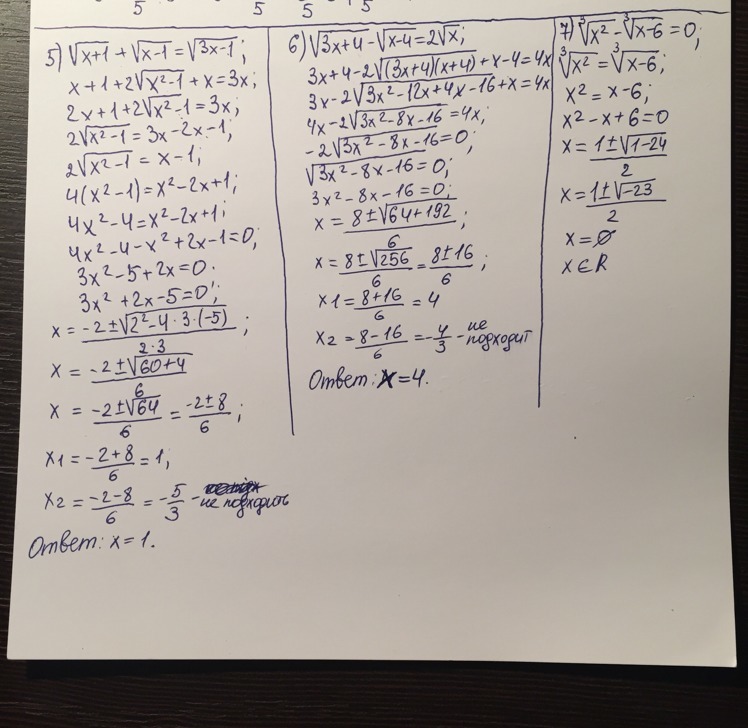 5 5 5 5
5) √x+1 + √x-1 = √3x-1;
x+1+2√x²-1 + x = 3x;
2x+1+2√x²-1 = 3x;
2√x²-1 = 3x-2x-1;
2√x²-1 = x-1;
4(x²-1) = x²-2x+1;
4x²-4 = x²-2x+1;
4x²-4-x²+2x-1=0;
3x²-5+2x=0.
3x²+2x-5=0;
x = -2±√2²-4·3·(-5) / 2·3;
x = -2±√60+4 / 6
x = -2±√64 / 6 = -2±8 / 6;
x1 = -2+8 / 6 = 1;
x2 = -2-8 / 6 = -5/3 - не подходит
Ответ: x=1.
6) √3x+4 - √x-4 = 2√x;
3x+4-2√(3x+4)(x+4) + x-4=4x
3x-2√3x²-12x+4x-16 + x = 4x
4x-2√3x²-8x-16 = 4x;
-2√3x²-8x-16 = 0;
√3x²-8x-16 = 0;
3x²-8x-16=0;
x = 8±√64+192 / 6;
x = 8±√256 / 6 = 8±16 / 6;
x1 = 8+16 / 6 = 4
x2 = 8-16 / 6 = -4/3 - не подходит
Ответ: x=4.
7) ³√x² - ³√x-6 = 0;
³√x² = ³√x-6;
x² = x-6;
x²-x+6=0
x = 1±√1-24 / 2
x = 1±√-23 / 2
x = ∅
x ∈ R